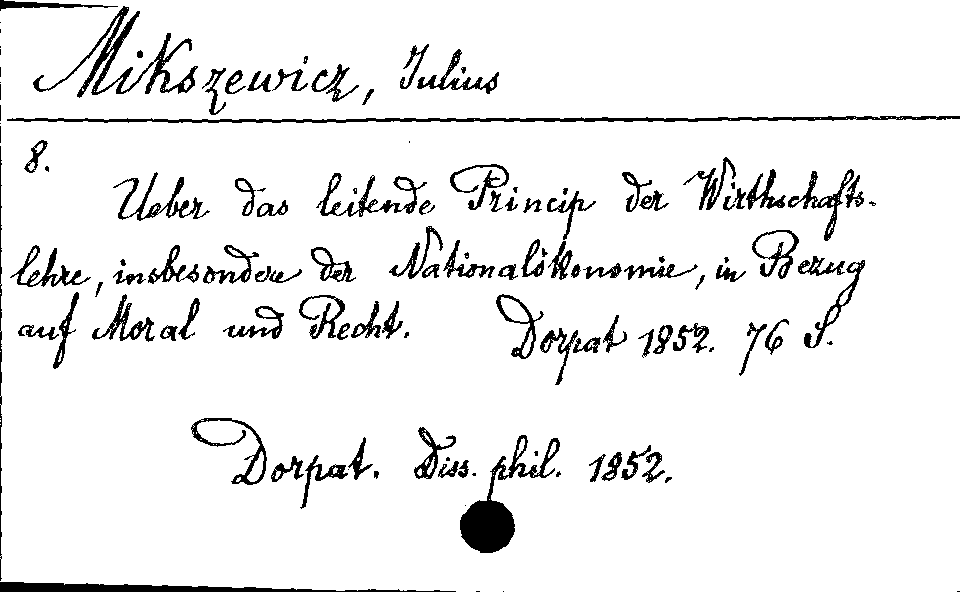 Mikszewicz, Julius
8.
Ueber das leitende Princip der Wirthschafts-
lehre, insbesondere der Nationalökonomie, in Bezug
auf Moral und Recht. Dorpat 1852. 76 S.
Dorpat. Diss. phil. 1852.